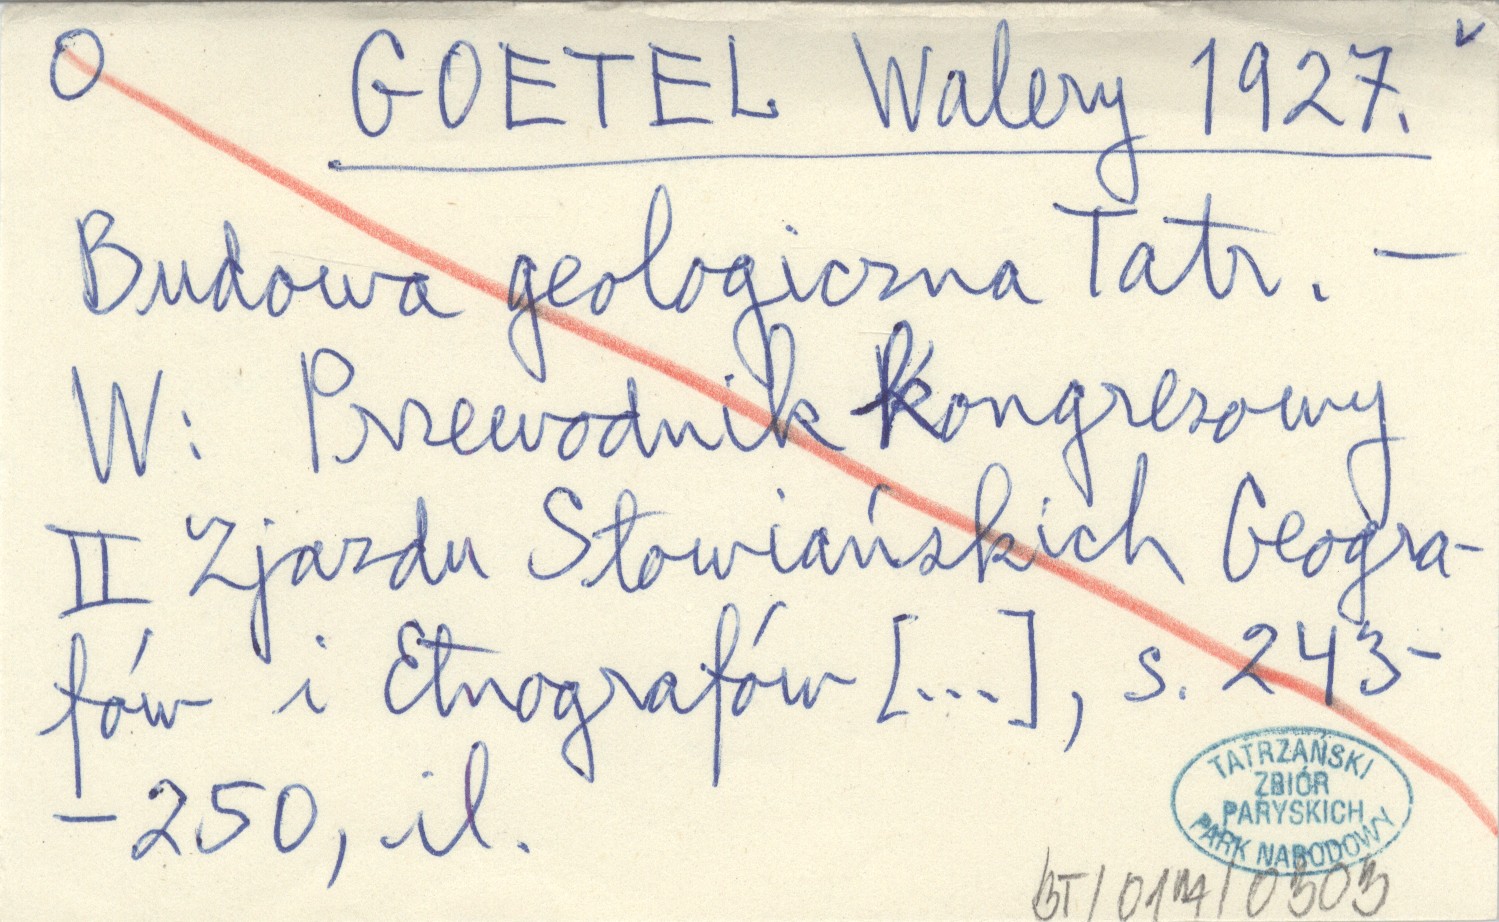 O GOETEL Walery 1927. v
Budowa geologiczna Tatr. —
W: Przewodnik Kongresowy
II Zjazdu Słowiańskich Geogra-
fów i Etnografów [...], s. 243-
-250, il.
TATRZAŃSKI
ZBIÓR
PARYSKICH
PARK NARODOWY
BT/0174/0303